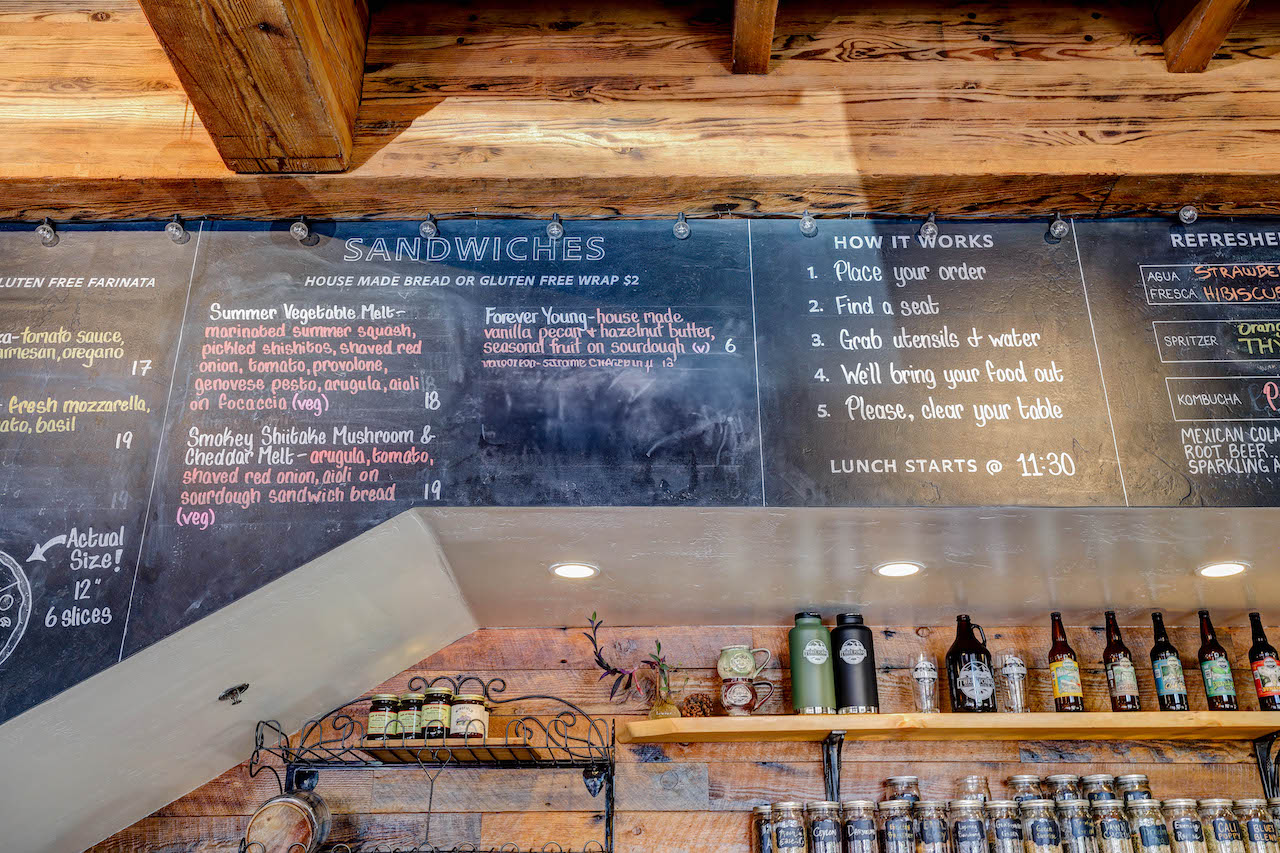 LUTEN FREE FARINATA
za-tomato sauce,
armesan, oregano
17
- fresh mozzarella,
ato, basil
19
19
Actual
Size!
12"
6 slices
SANDWICHES
HOUSE MADE BREAD OR GLUTEN FREE WRAP $2
Summer Vegetable Melt-
marinated summer squash,
pickled shishitos, shaved red
onion, tomato, provolone,
genovese pesto, arugula, aioli
on focaccia (veg) 18
Smokey Shiitake Mushroom &
Cheddar Melt- arugula, tomato,
shaved red onion, aioli on
sourdough sandwich bread 19
(veg)
Forever Young-house made
vanilla pecan & hazelnut butter,
seasonal fruit on sourdough (v) 6
HOW IT WORKS
1. Place your order
2. Find a seat
3. Grab utensils & water
4. We'll bring your food out
5. Please, clear your table
LUNCH STARTS @ 11:30
REFRESHE
AGUA STRAWBE
FRESCA HIBISCU
SPRITZER Orang
THY
KOMBUCHA P
MEXICAN COLA
ROOT BEER
SPARKLING A
CEYLON
CALI
BLUE
BLEN